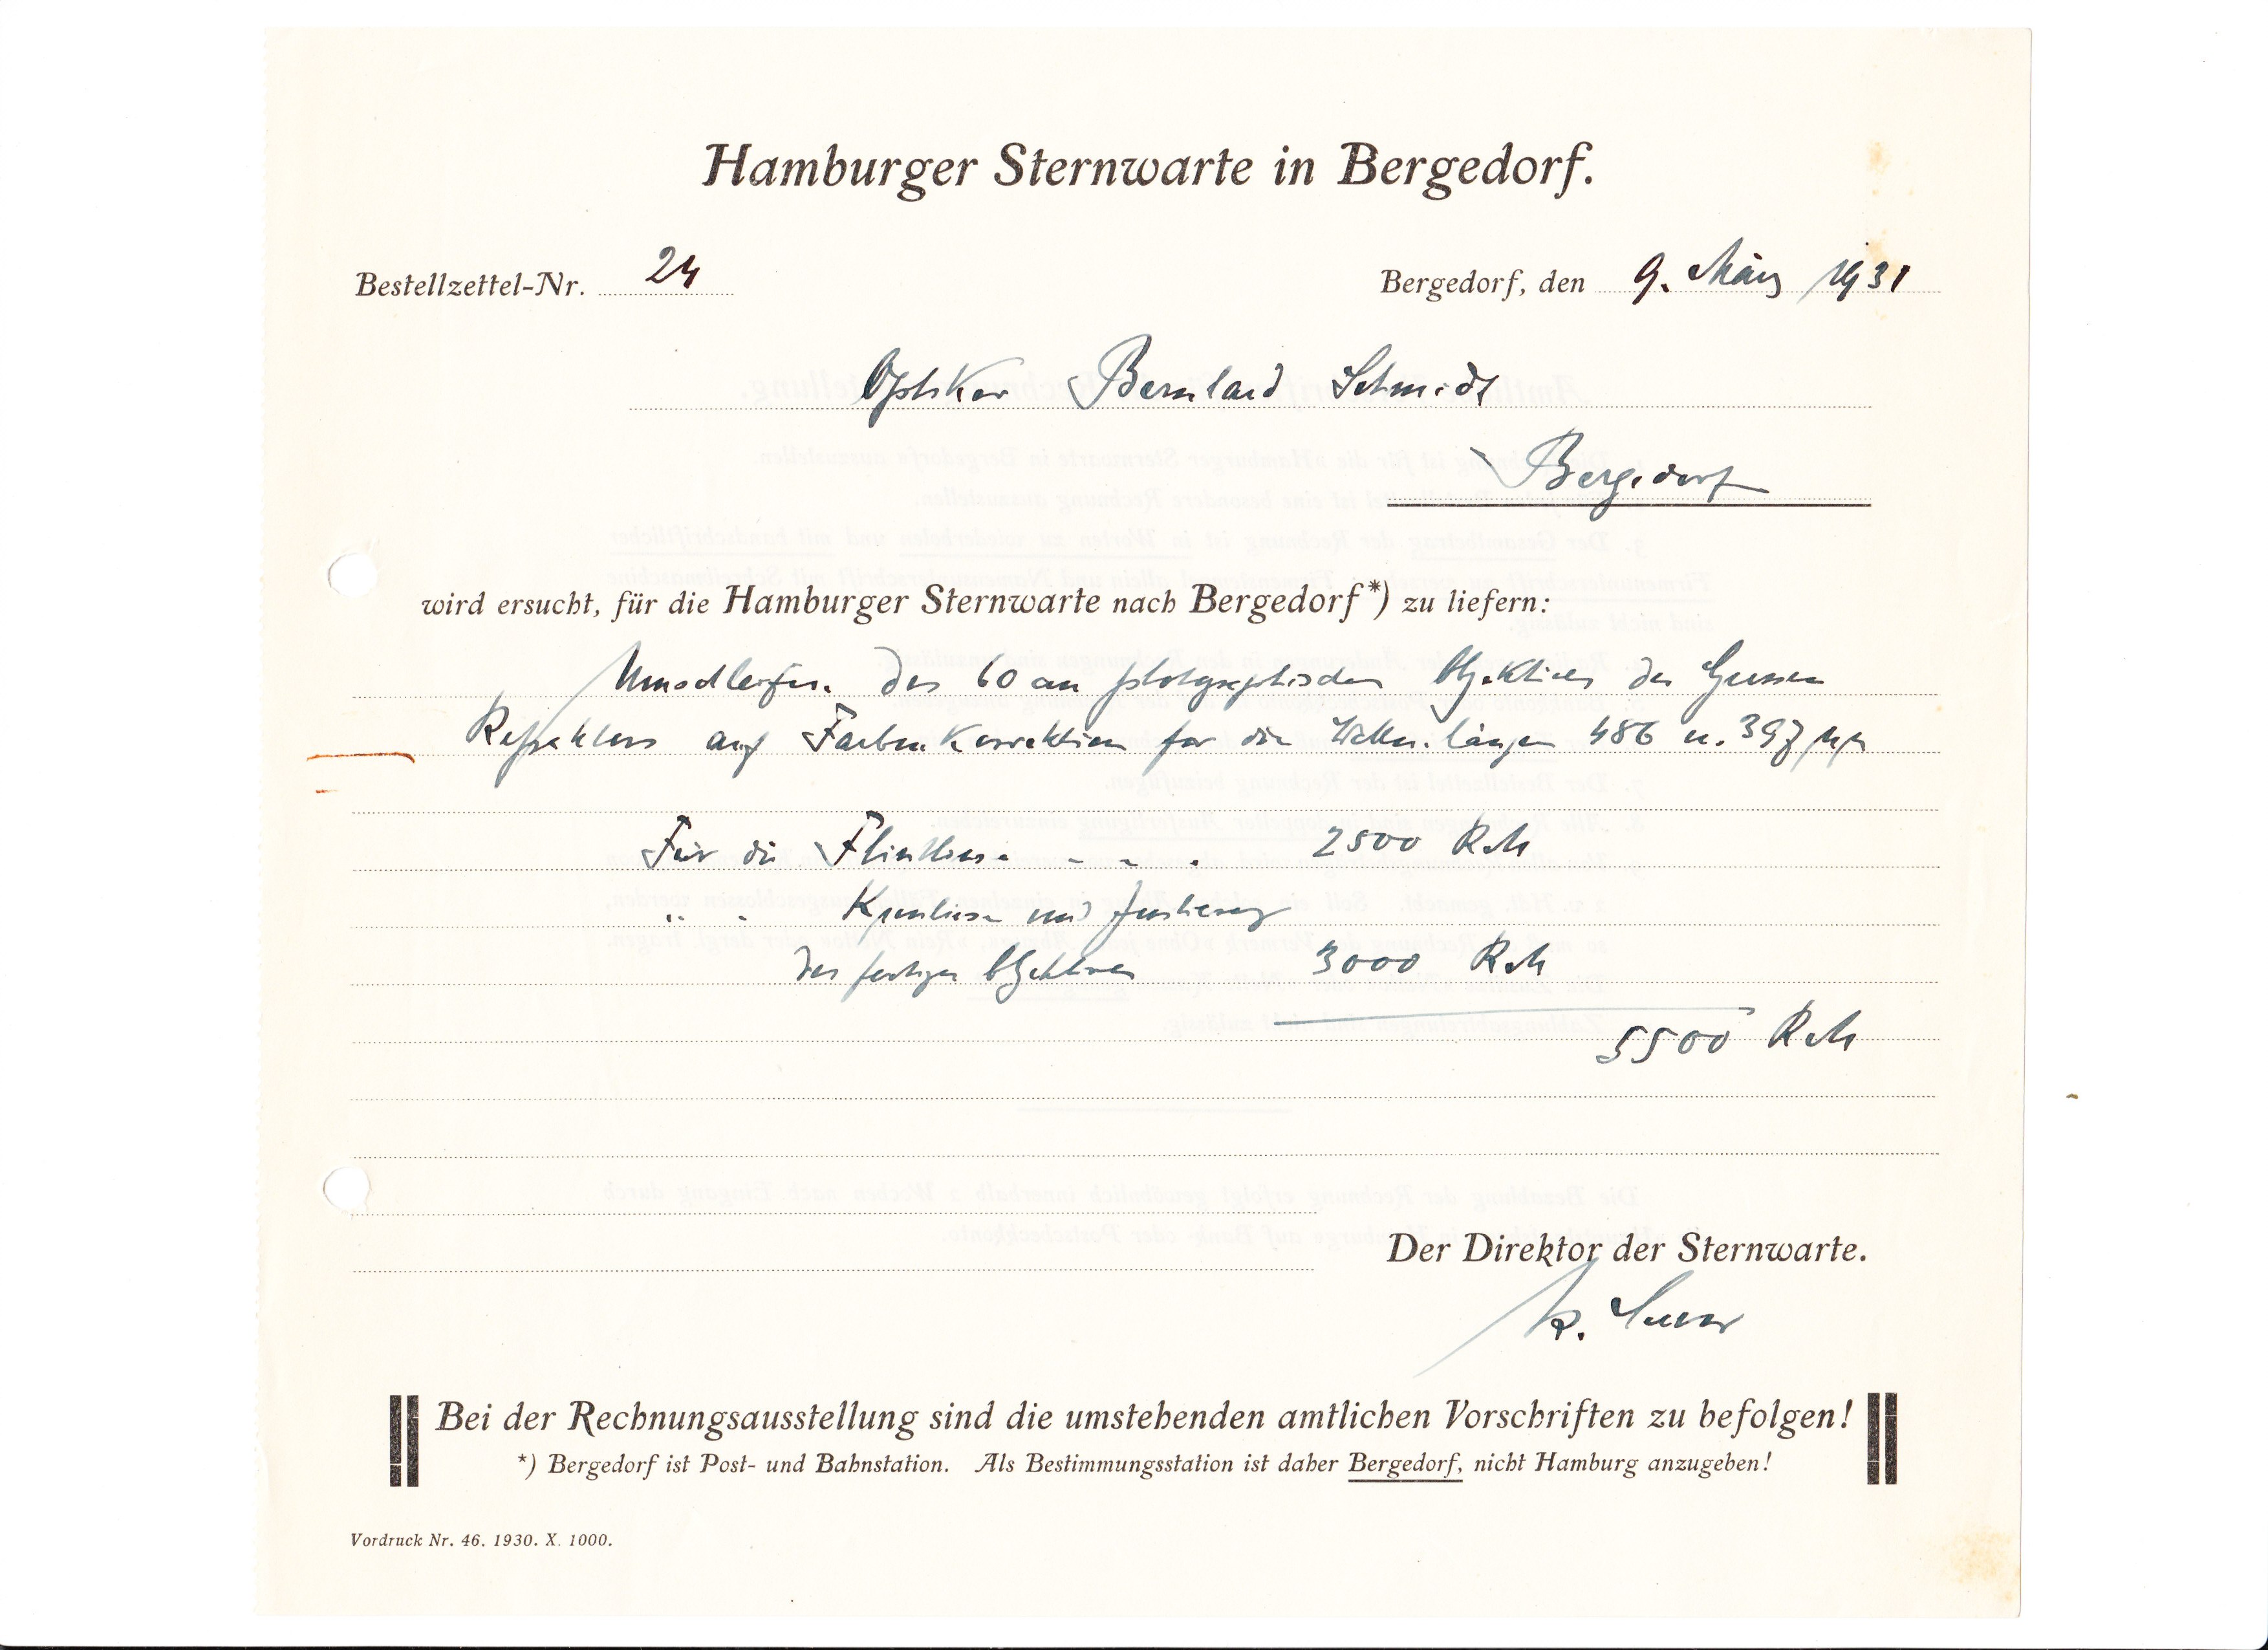 Hamburger Sternwarte in Bergedorf.
Bestellzettel-Nr. 24 Bergedorf, den 9. März 1931
Optiker Bernhard Schmidt
Bergedorf
wird ersucht, für die Hamburger Sternwarte nach Bergedorf*) zu liefern:
Umschleifen des 60 cm photographischen Objektives des Grossen
Refraktors auf Farbenkorrektion für die Wellenlängen 486 u. 397 μμ
Für die Flintlinse - - . 2500 RM
" " Kronlinse und Justierung
des fertigen Objektives 3000 RM
5500 RM
Der Direktor der Sternwarte.
R.
Bei der Rechnungsausstellung sind die umstehenden amtlichen Vorschriften zu befolgen!
*) Bergedorf ist Post- und Bahnstation. Als Bestimmungsstation ist daher Bergedorf, nicht Hamburg anzugeben!
Vordruck Nr. 46. 1930. X. 1000.